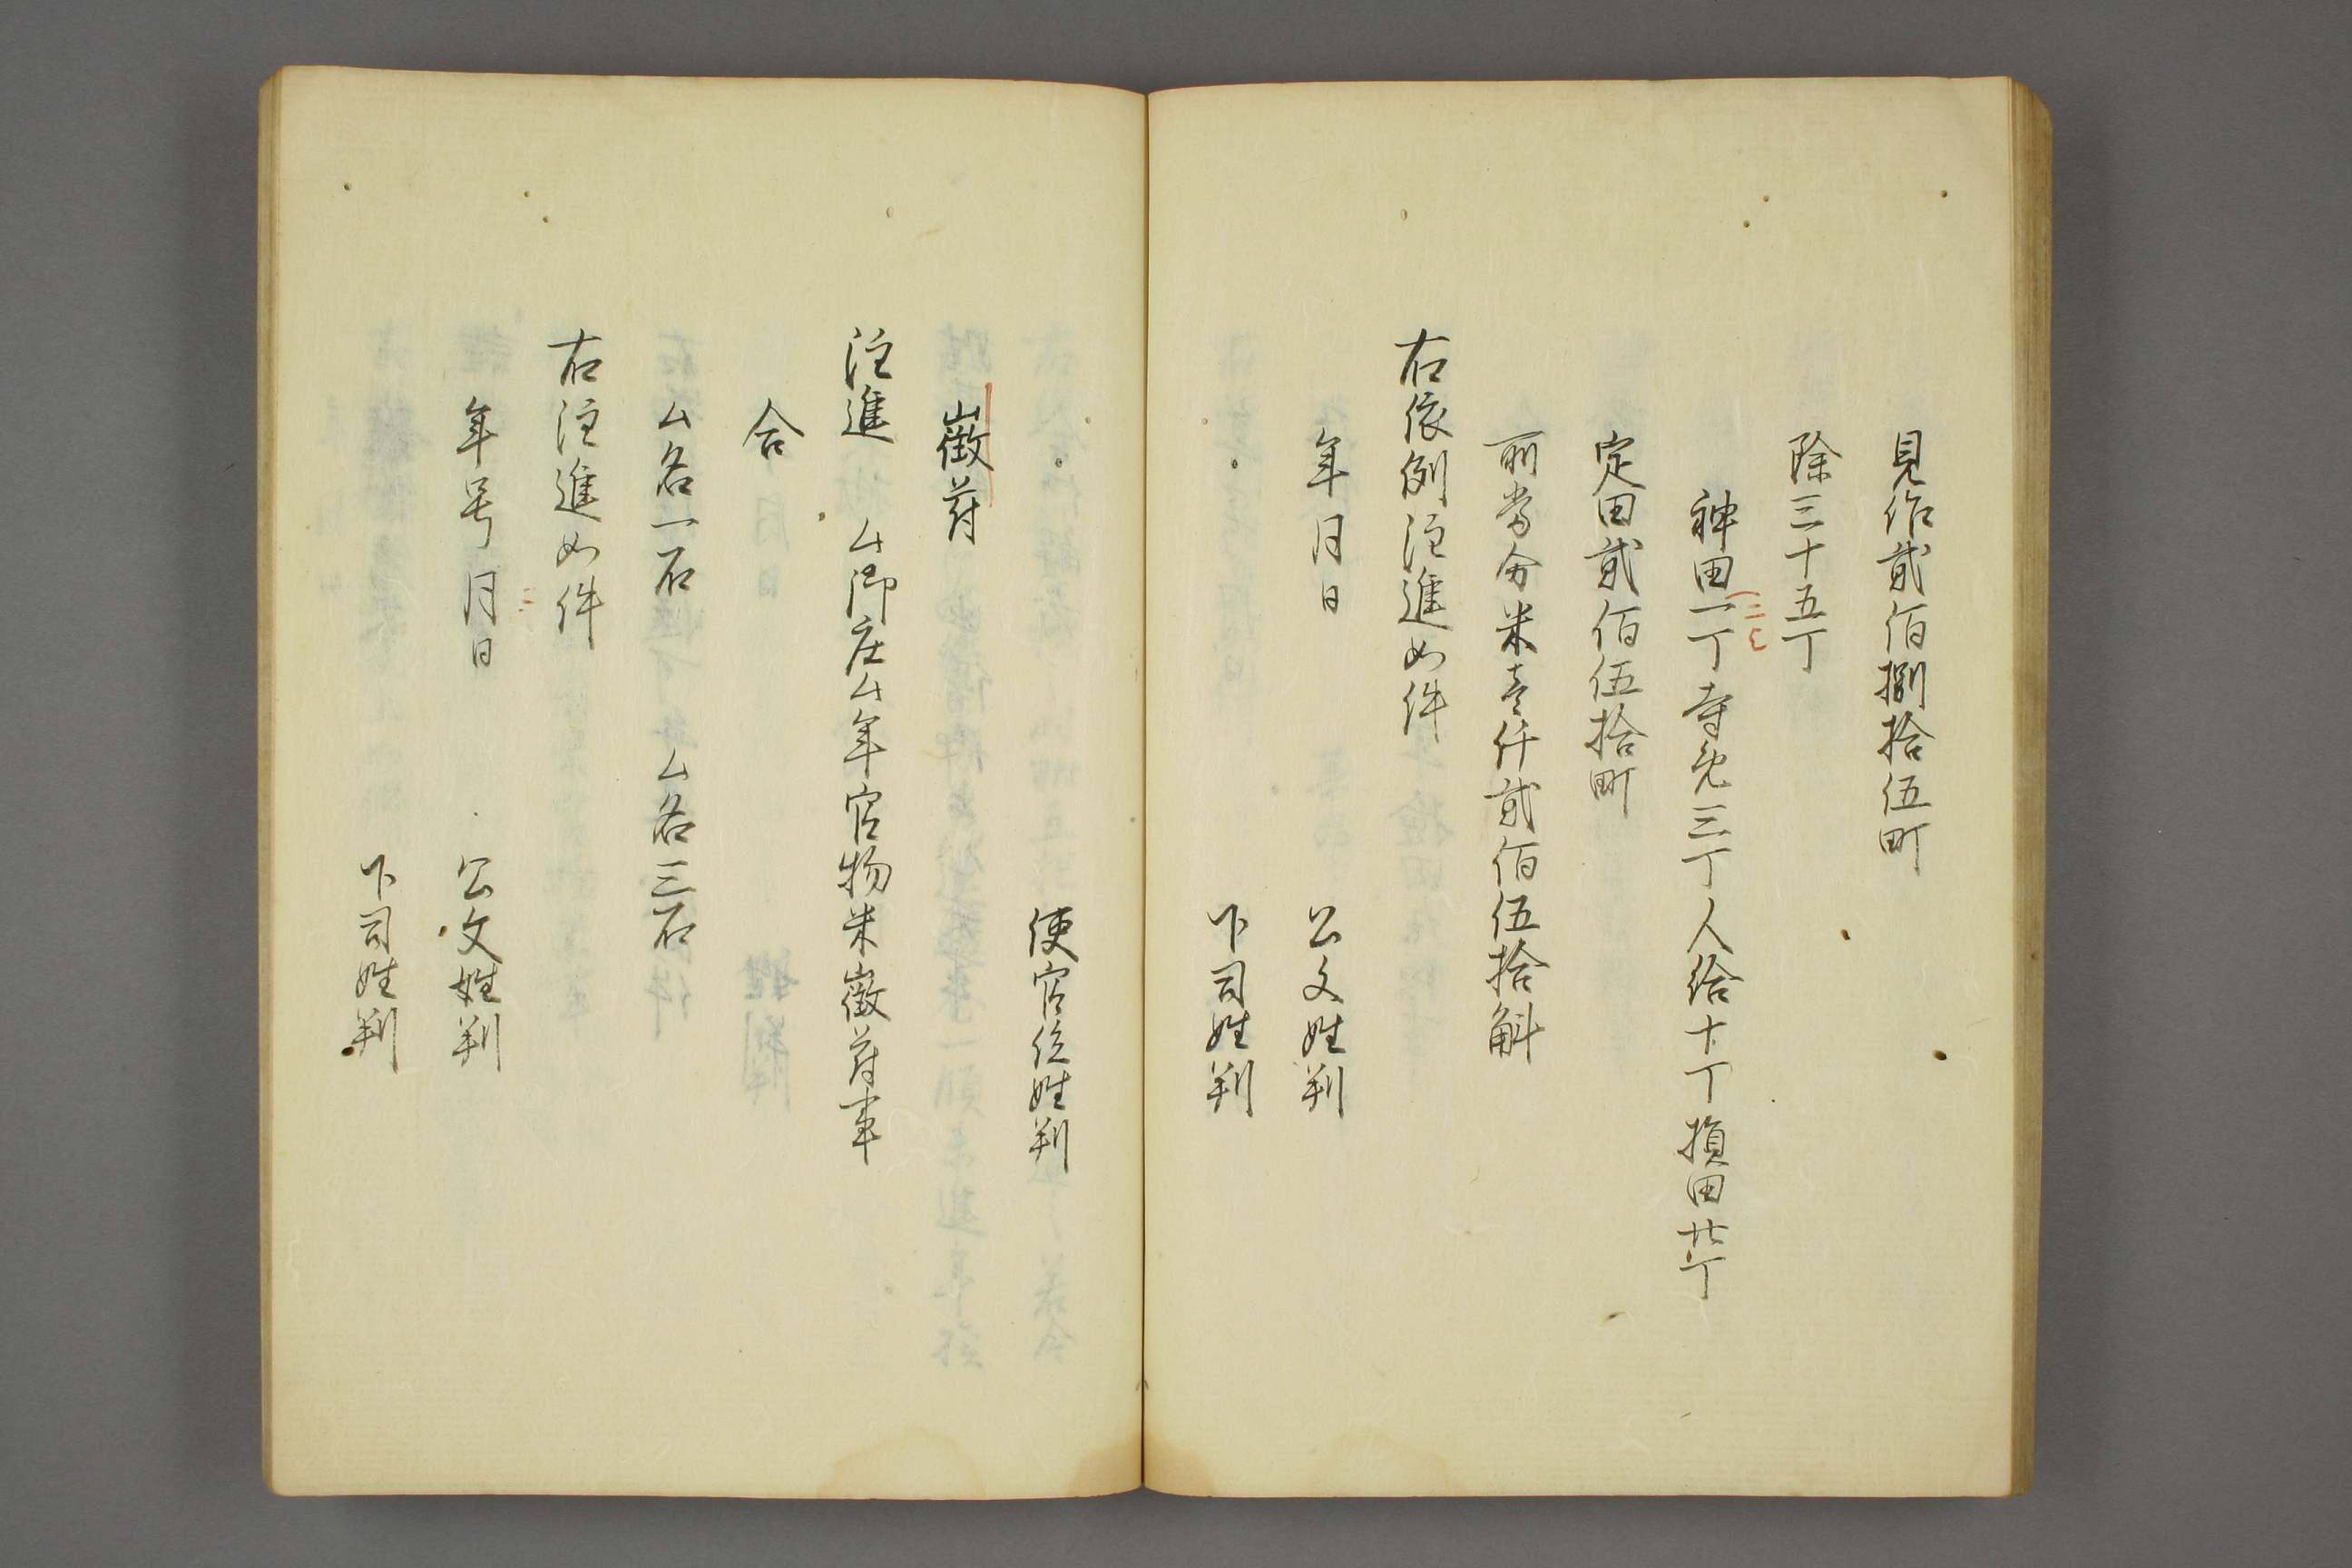 見作貳佰捌拾伍町
除三十五丁
神田一丁寺免三丁人給十丁損田廿丁
定田貳佰伍拾町
所当分米壱仟貳佰伍拾斛
右依例注進如件
年月日 公文姓判
下司姓判
使官位姓判
徴苻
注進 ム御庄ム年官物米徴苻事
合
ム名一石 ム名三石
右注進如件
年号月日 公文姓判
下司姓判